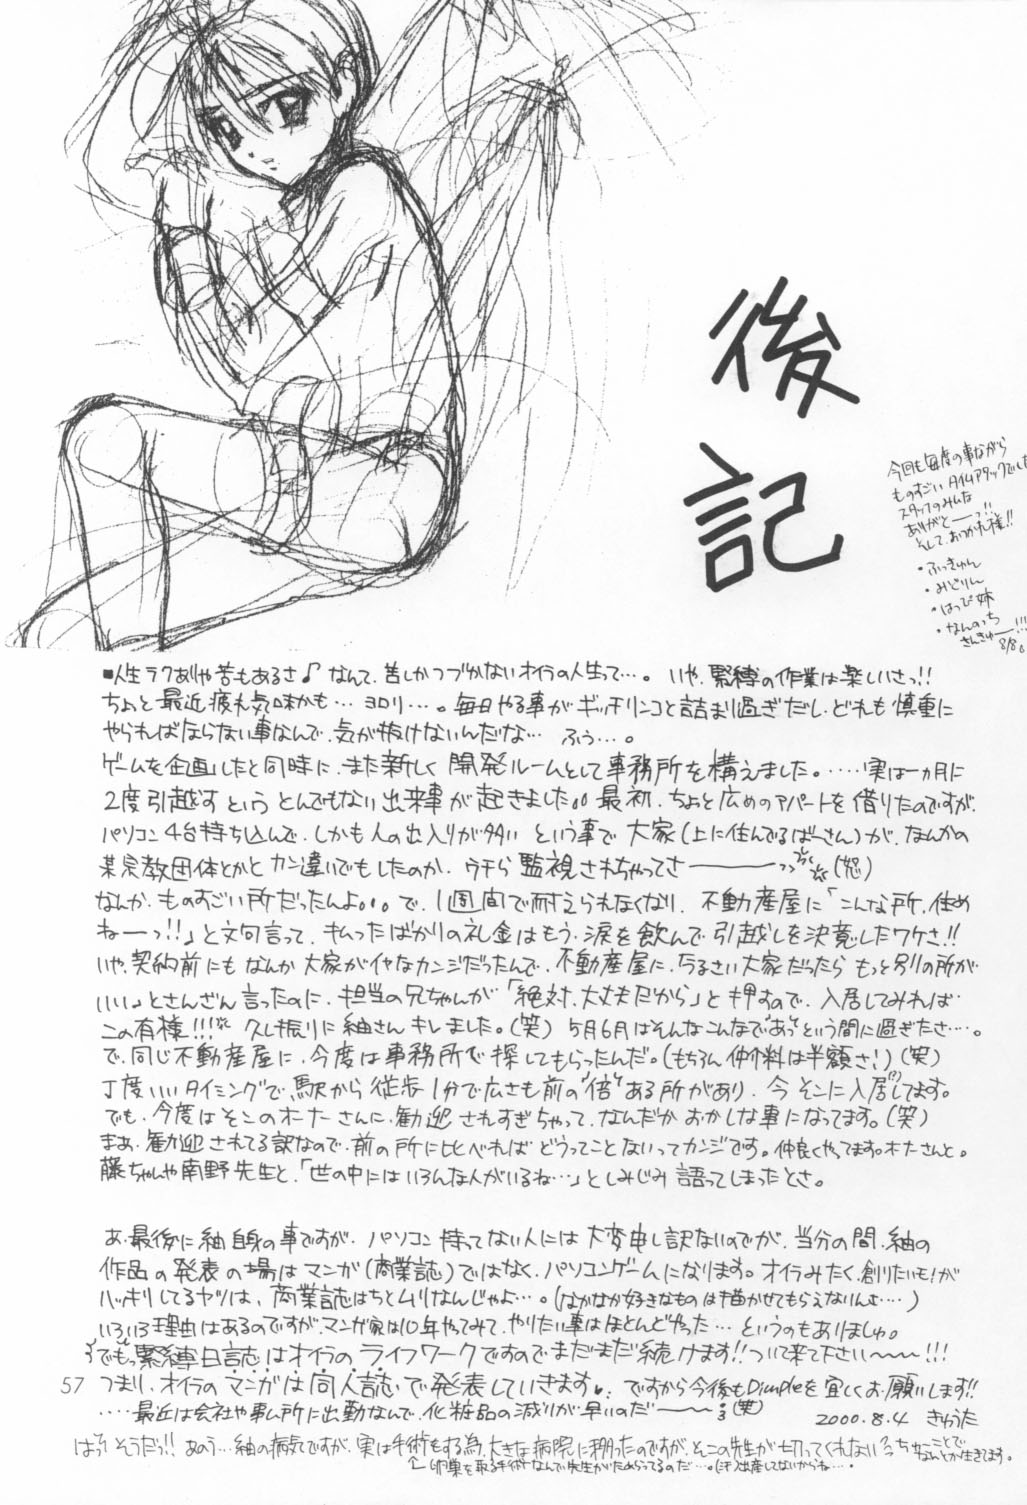 後記
今回も毎度の事ながら
ものすごいタイムアタックでした
スタッフのみんな
ありがとーっ!!
そして、おつかれ様!!
・ふっきゅん
・みどりん
・はっぴ姉
・なんのっち
さんきゅー!!!
8/8
■人生ラクありゃ苦もあるさ♪なんて、苦しかつづかないオイラの人生って…。いや、緊縛の作業は楽しいさっ!!
ちょっと最近疲れ気味かも…ヨロリ…。毎日やる事がギッチリンコと詰まり過ぎだし、どれも慎重に
やらればならない事なんで、気が抜けないんだな… ふぅ…。
ゲームを企画したと同時に、また新しく開発ルームとして事務所を構えました。……実は一ヵ月に
2度引越すというとんでもない出来事が起きました。。最初、ちょっと広めのアパートを借りたのですが、
パソコン4台持ち込んで、しかも人の出入りが多いという事で大家(上に住んでるばーさん)が、なんかの
某宗教団体とかとカン違いでもしたのか、ウチら監視されちゃってさーーっっ(怒)
なんか、ものすごい所だったんよ。。。で、1週間で耐えられなくなり、不動産屋に「こんな所、住め
ねーっ!!」と文句言って、払ったばかりの礼金はもう、涙を飲んで引越しを決意したワケさ!!
いや、契約前にもなんか大家がイヤなカンジだったんで、不動産屋に、うるさい大家だったらもっと別の所が
いい。とさんざん言ったのに、担当の兄ちゃんが「絶対、大丈夫だから」と押すので、入居してみれば
この有様!!! 久し振りに紬さんキレました。(笑) 5月6月はそんなこんなで“あっ”という間に過ぎたさ…。
で、同じ不動産屋に、今度は事務所で探してもらったんだ。(もちろん仲介料は半額さ!)(笑)
丁度いいタイミングで、駅から徒歩1分で広さも前の“倍”ある所があり、今そこに入居(?)してます。
でも、今度はそこのオーナーさんに、歓迎されすぎちゃって、なんだかおかしな事になってます。(笑)
まあ、歓迎されてる訳なので、前の所に比べればどうってことないってカンジです。仲良くやってます。オーナーさんと。
藤ちゃんや南野先生と、「世の中にはいろんな人がいるね…」としみじみ語ってしまったとさ。
あ、最後に紬自身の事ですが、パソコン持ってない人には大変申し訳ないのですが、当分の間、紬の
作品の発表の場はマンガ(商業誌)ではなく、パソコンゲームになります。オイラみたく、創りたいも!が
ハッキリしてるヤツは、商業誌はちとムリなんじゃよ…。(なかなか好きなものは描かせてもらえないんよ…)
いろいろ理由はあるのですが、マンガ家は10年やってみて、やりたい事はほとんどやった…というのもありましゅ。
でもっ緊縛日誌はオイラのライフワークですのでまだまだ続けます!!ついて来て下さい〜〜!!!
つまり、オイラのマンガは同人誌で発表していきます♥ ですから今後もDimpleを宜しくお願いします!!
57
…最近は会社や事ム所に出勤なんで、化粧品の減りが早いのだーー(笑)
2000.8.4 きゅうた
はっ!そうだっ!! あのう…紬の病気ですが、実は手術をする為、大きな病院に移ったのですが、そこの先生が切ってくれないっちゅーことで
なんとか生きてます。
↑卵巣を取る手術なんで先生がためらってるのだ…。出産してないからね…。